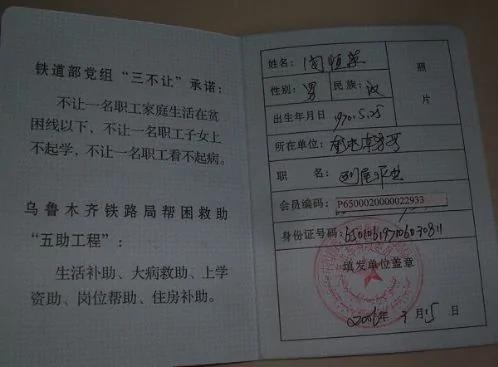 铁道部党组“三不让”承诺：
不让一名职工家庭生活在贫
困线以下，不让一名职工子女上
不起学，不让一名职工看不起病。
乌鲁木齐铁路局帮困救助
“五助工程”：
生活补助、大病救助、上学
资助、岗位帮助、住房补助。
姓名：
照
片
性别：男 民族：汉
出生年月日 1970.5.25
所在单位：
职 名
会员编码：P6500020000022933
身份证号码：
填发单位盖章
年 月15日